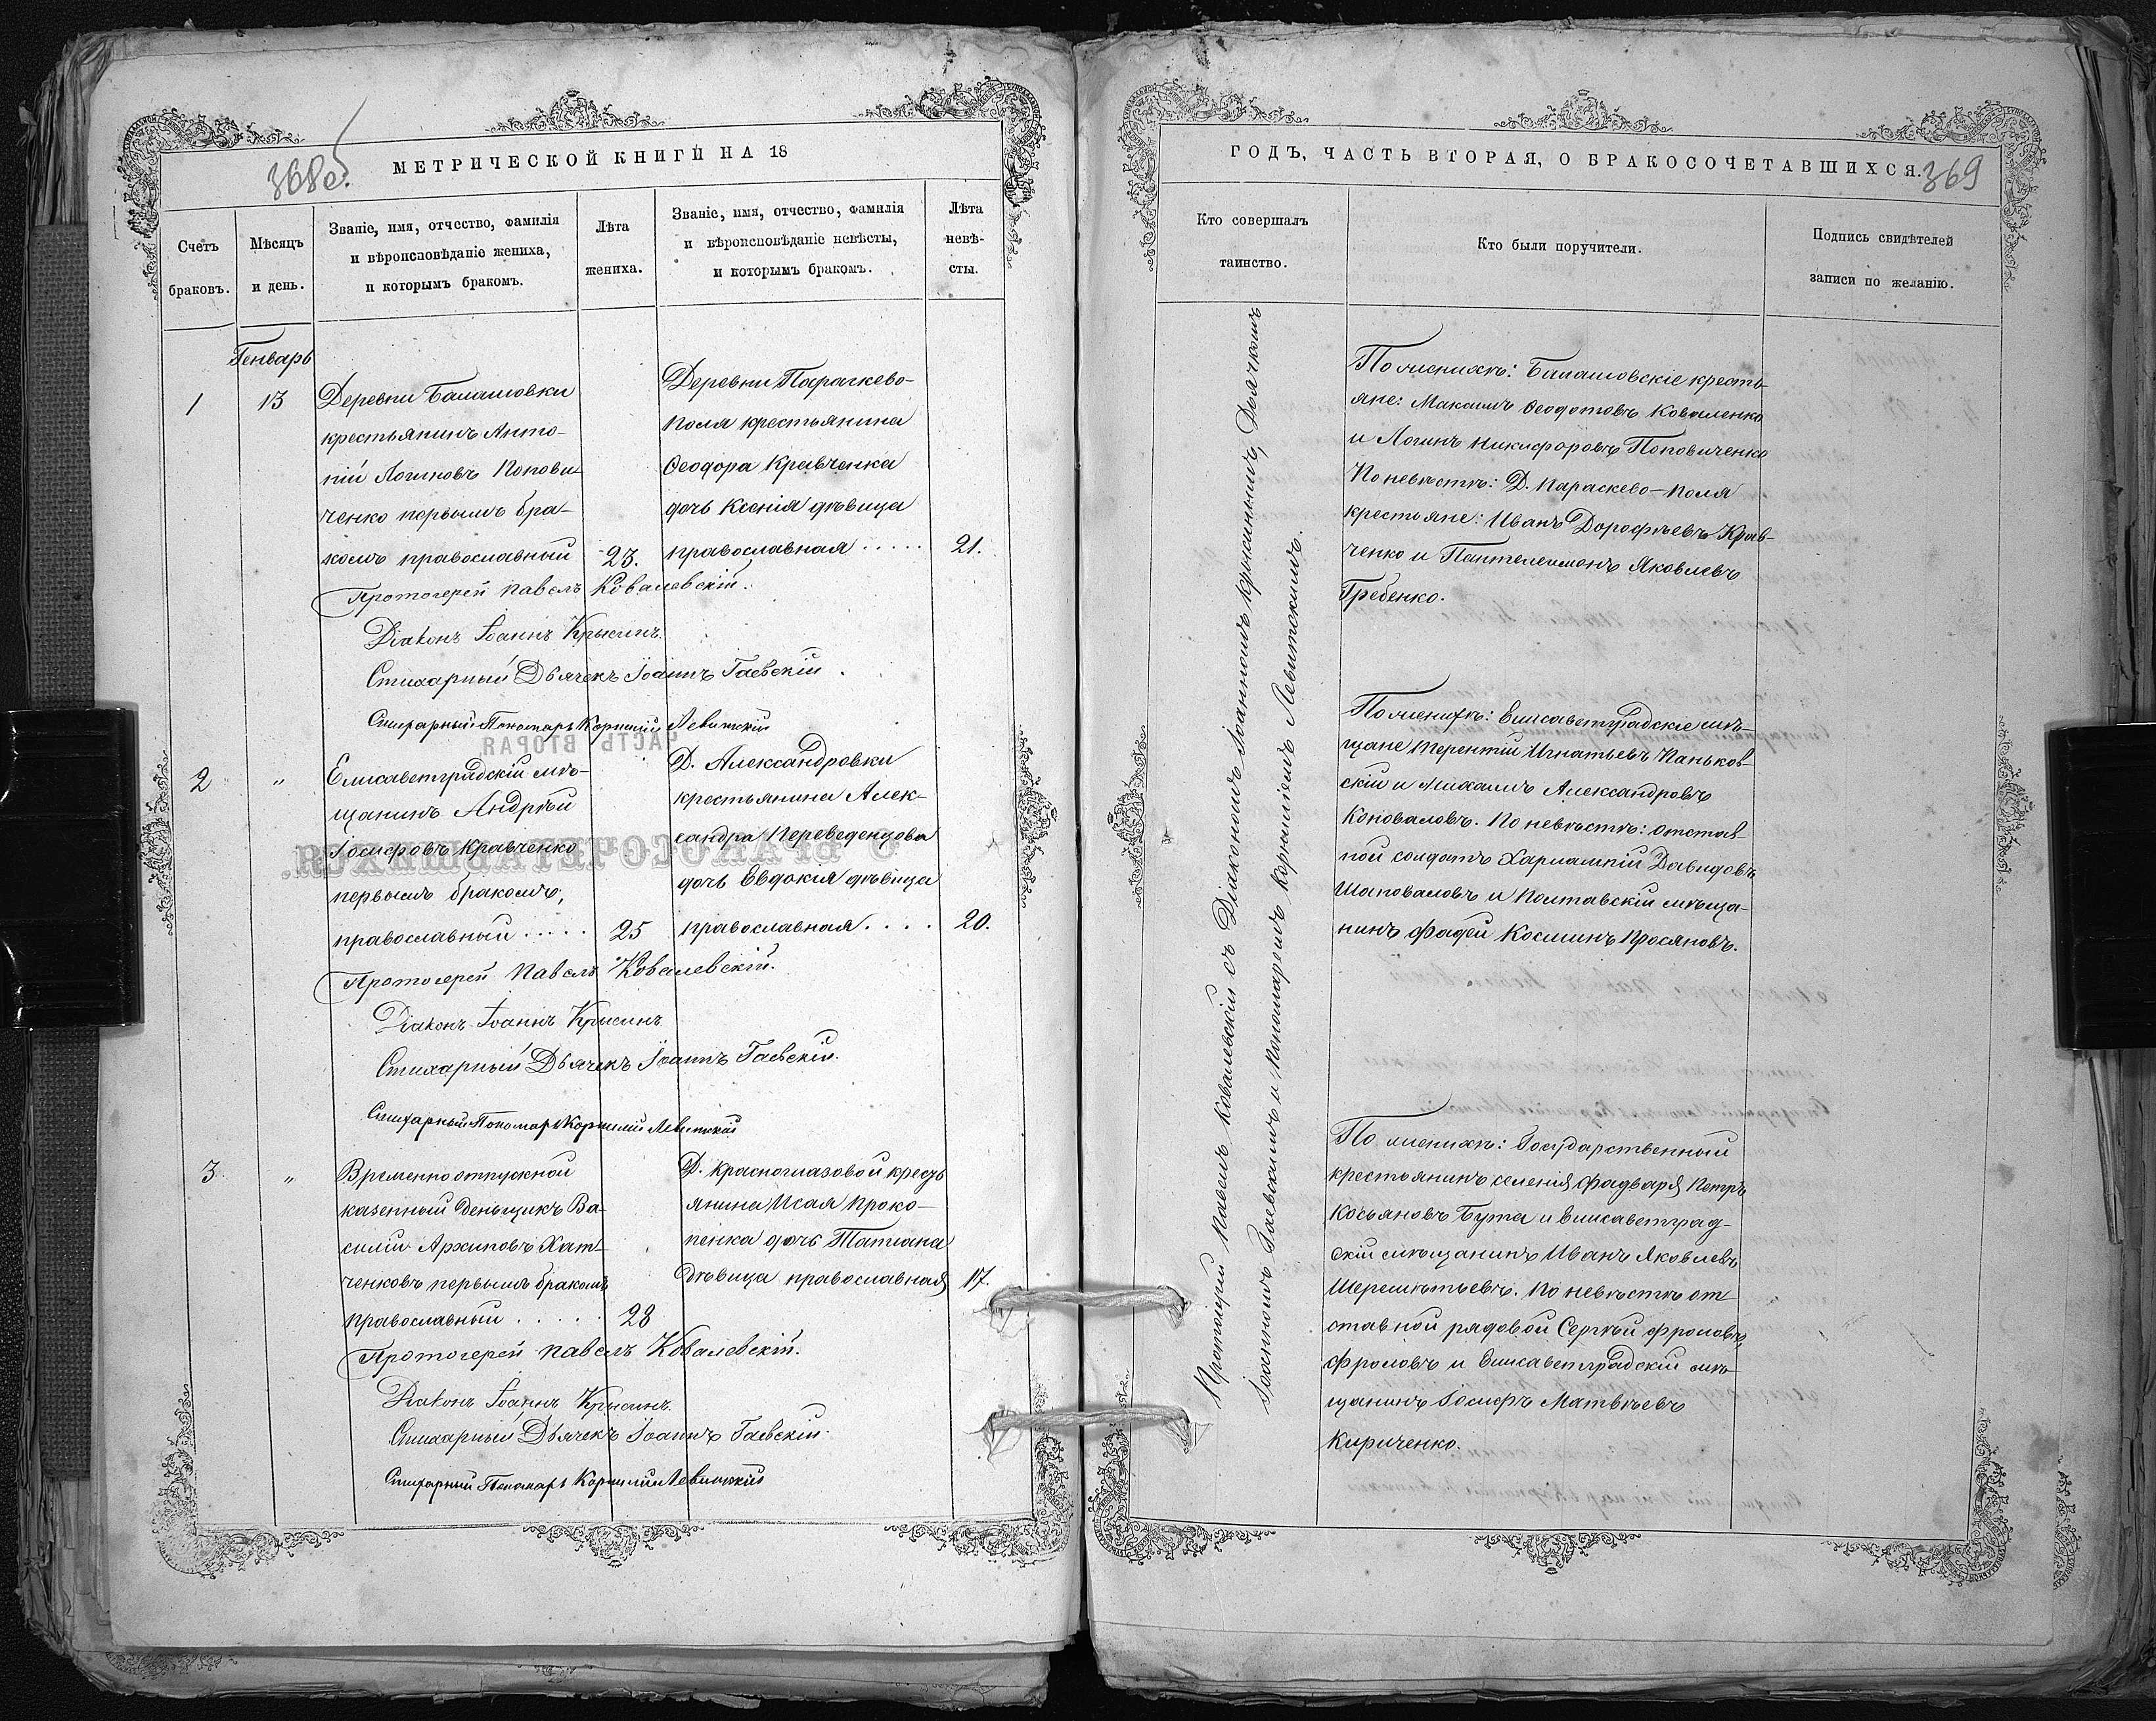 368об.
МЕТРИЧЕСКОЙ КНИГИ НА 18
Счетъ
браковъ.
Мѣсяцъ
и день.
Званіе, имя, отчество, фамилія
и вѣроисповѣданіе жениха,
и которымъ бракомъ.
Лѣта
жениха.
Званіе, имя, отчество, фамилія
и вѣроисповѣданіе невѣсты,
и которымъ бракомъ.
Лѣта
невѣ-
сты.
Генварь
1
13
Деревни Балашовки
крестьянинъ Анто-
ній Логиновъ Попови
ченко первымъ бра-
комъ православный
23.
Деревни Параскево-
поля крестьянина
Ѳеодора Кравченка
дочь Ксенія дѣвица
православная .....
21.
Протоіерей Павелъ Ковалевскій.
Діаконъ Іоаннъ Крысинъ.
Стихарный Дьячекъ Іоаннъ Гаевскій.
Стихарный Пономарь Корнилій Левитскій
2
"
Елисаветградскій мѣ-
щанинъ Андрей
Іосифовъ Кравченко
первымъ бракомъ,
православный .....
25
Д. Александровки
крестьянина Алек-
сандра Переведенцова
дочь Евдокія дѣвица
православная....
20.
Протоіерей Павелъ Ковалевскій.
Діаконъ Іоаннъ Крысинъ
Стихарный Дьячекъ Іоаннъ Гаевскій.
Стихарный Пономарь Корнилій Левитскій
3.
"
Временноотпускной
казенный деньщикъ Ва-
силій Архиповъ Хат-
ченковъ первымъ бракомъ
православный .....
28
Д. Красноглазовой крестъ
янина Исая Проко-
пенка дочь Татіана
дѣвица православная
17.
Протоіерей Павелъ Ковалевскій.
Діаконъ Іоаннъ Крысинъ.
Стихарный Дьячекъ Іоаннъ Гаевскій.
Стихарный Пономарь Корнилій Левитскій
ГОДЪ, ЧАСТЬ ВТОРАЯ, О БРАКОСОЧЕТАВШИХСЯ.
369
Кто совершалъ
таинство.
Кто были поручители.
Подпись свидѣтелей
записи по желанію.
Протоіерей Павелъ Ковалевскій съ Діакономъ Іоанномъ Крысинымъ, Дьячкомъ
Іоанномъ Гаевскимъ и Пономаремъ Корниліемъ Левитскимъ.
По женихѣ: Балашовскіе кресть-
яне: Максимъ Ѳеодотовъ Коваленко
и Логинъ Никифоровъ Поповиченко
По невѣстѣ: Д. Параскево-поля
крестьяне: Иванъ Дорофѣевъ Крав-
ченко и Пантелеимонъ Яковлевъ
Гребенко.
По женихѣ: Елисаветградскіе мѣ-
щане Терентій Игнатьевъ Паньков-
скій и Михаилъ Александровъ
Коноваловъ. По невѣстѣ: отстав-
ной солдатъ Харлампій Давидовъ
Шаповаловъ и Полтавскій мѣща-
нинъ Фадей Косминъ Просяновъ.
По женихѣ: Государственный
крестьянинъ селенія Фадваря Петръ
Косьяновъ Бута и Елисаветград-
скій мѣщанинъ Иванъ Яковлевъ
Шереметьевъ. По невѣстѣ от
ставной рядовой Сергѣй Фроловъ
Фроловъ и Елисаветградскій мѣ-
щанинъ Іосифъ Матвѣевъ
Кириченко.